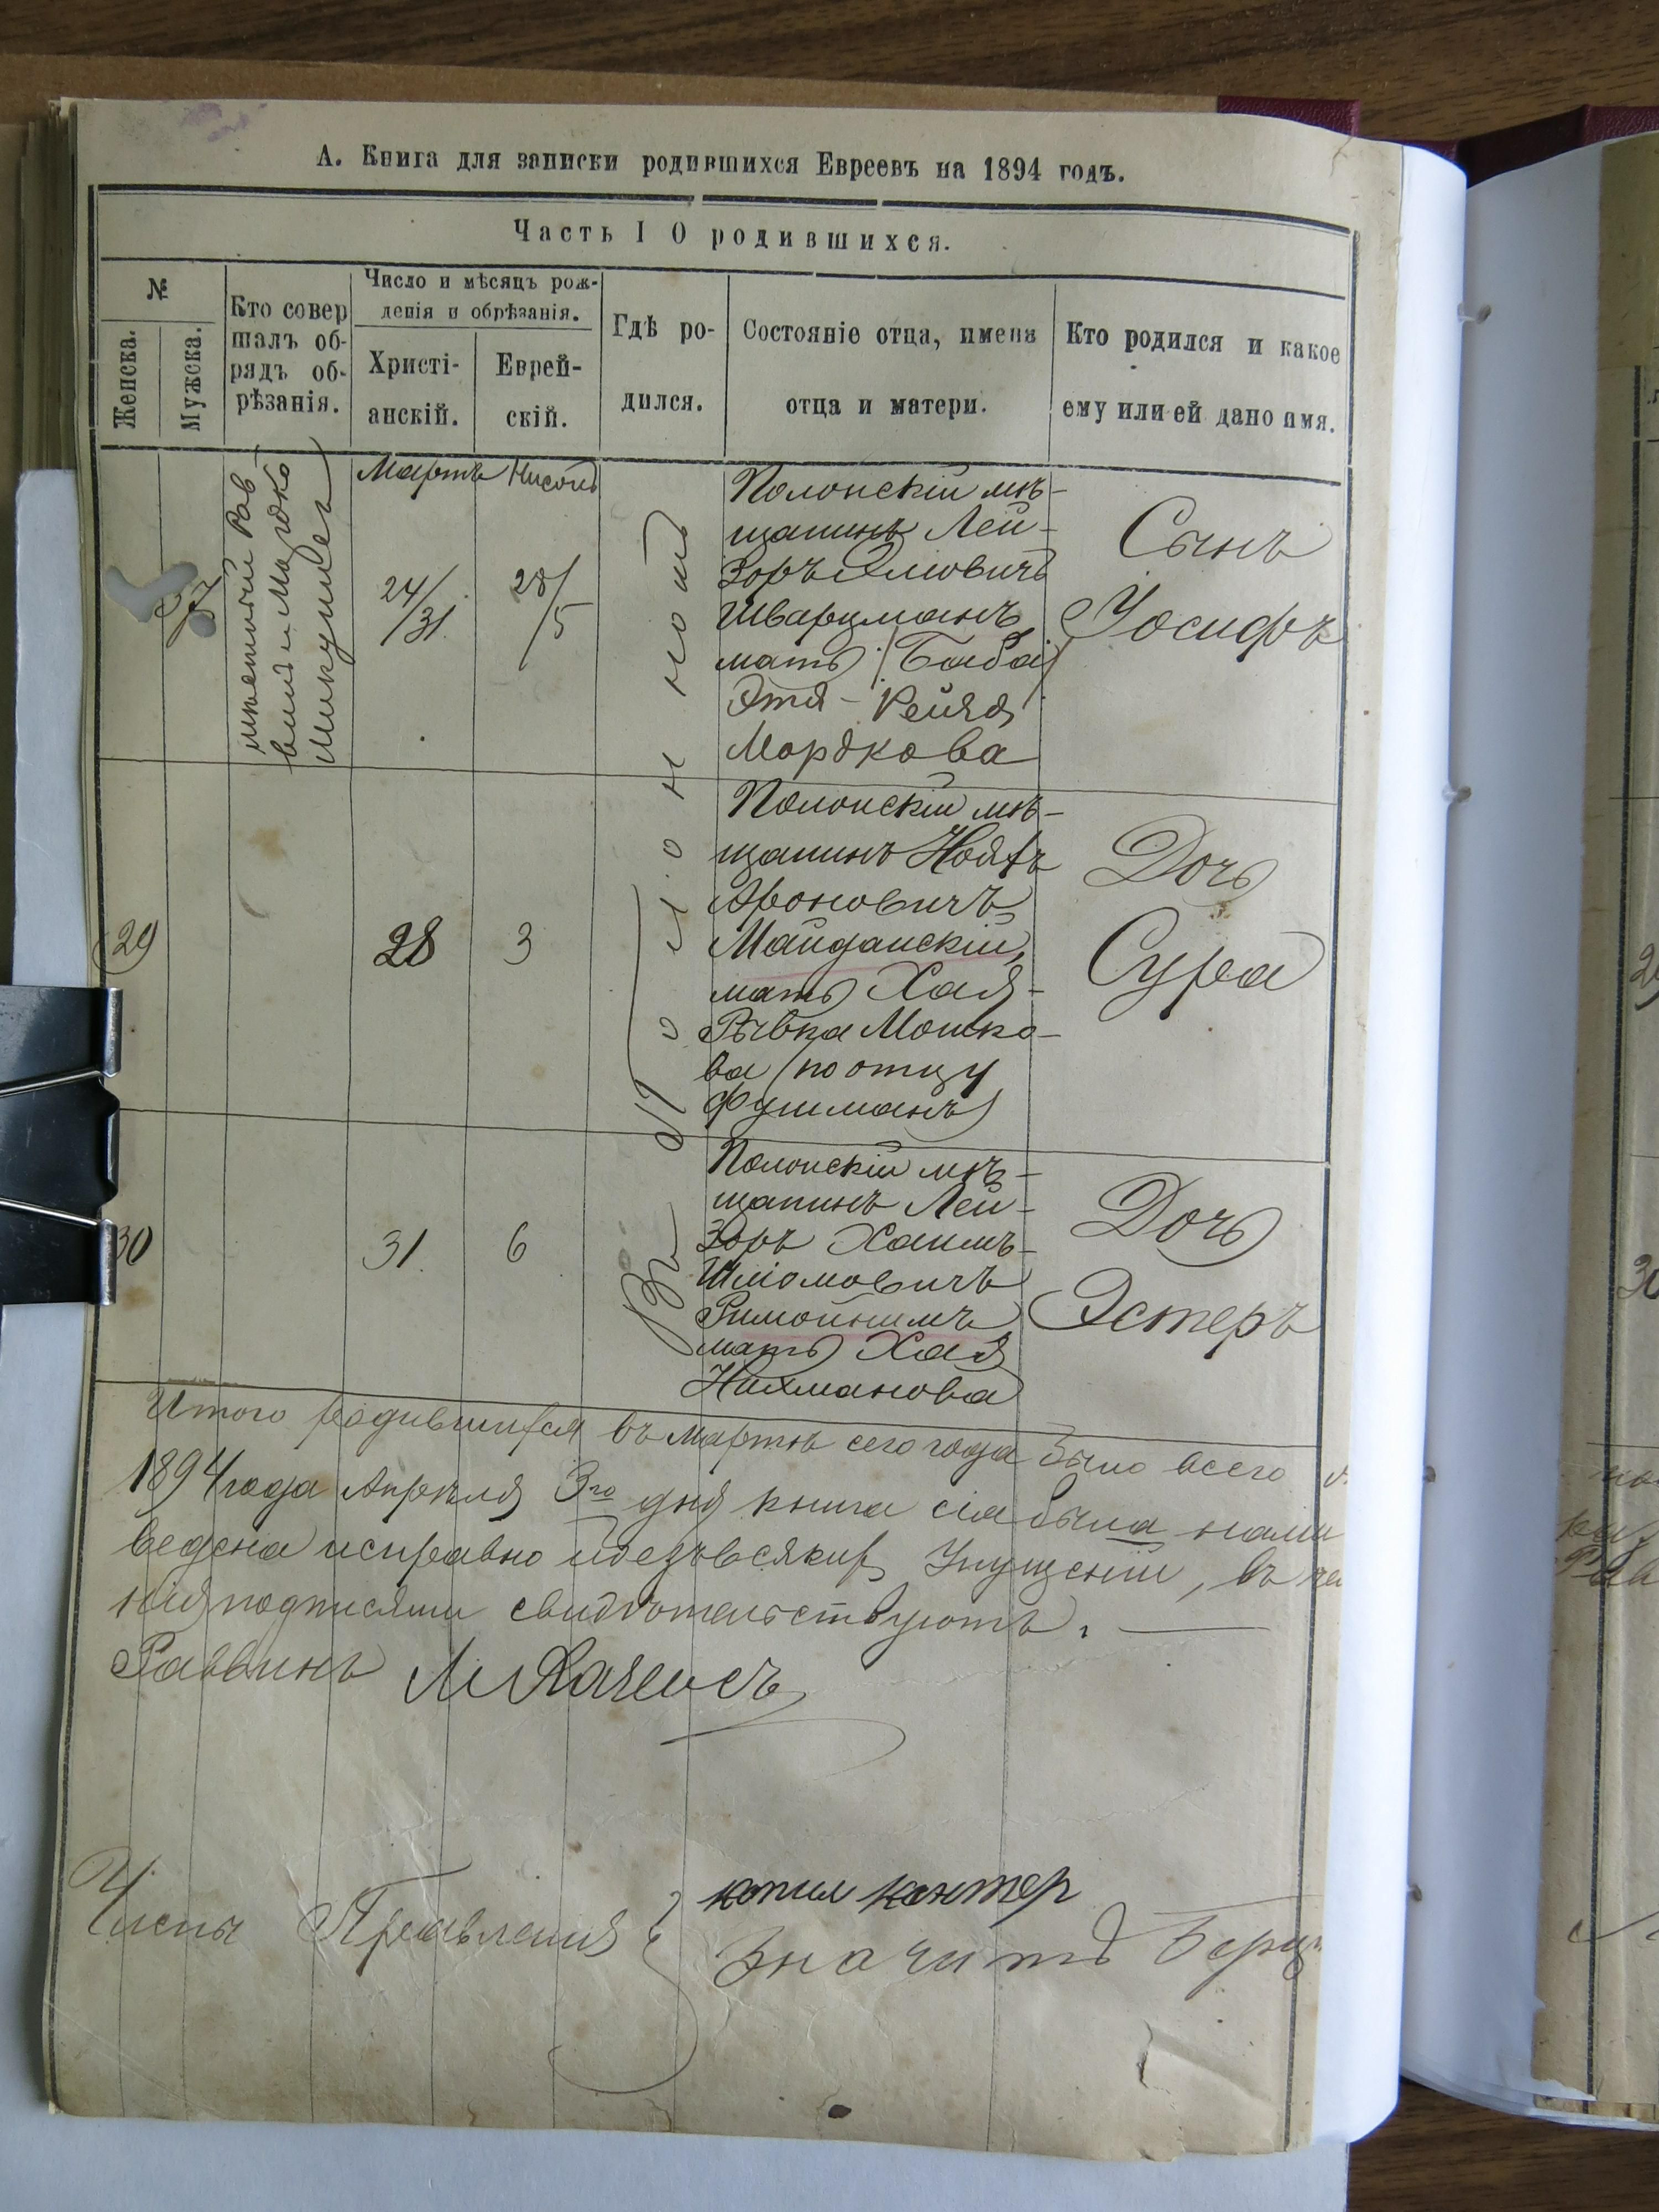 А. Книга для записки родившихся Евреевъ на 1894 годъ.
Часть I О родившихся.
№
Женска.
Мужска.
Кто совер
шалъ об-
рядъ об-
рѣзанія.
Число и мѣсяцъ рож-
денія и обрѣзанія.
Христі-
анскій.
Еврей-
скій.
Гдѣ ро-
дился.
Состояніе отца, имена
отца и матери.
Кто родился и какое
ему или ей дано имя.
37
мѣстный Рав
винъ Мордко
Мартъ
24/31.
Нисонъ
28/5
Въ Полонномъ
Полонскій мѣ-
щанинъ Лей-
зоръ
Шварцманъ
мать
Этя-Рейзя
Мордкова
Сынъ
Іосифъ
29
28
3
Полонскій мѣ-
щанинъ
Ароновичъ
Майданскій,
мать Хая-
Рывка Мошко-
ва (по отцу
Фушманъ)
Дочь
Сура
30
31.
6
Полонскій мѣ-
щанинъ Лей-
зоръ Хаимъ-
Шліомовичъ
мать Хая
Нахманова
Дочь
Эстеръ
Итого родившихся въ мартѣ сего года было всего
1894 года Апрѣля 3го дня книга сія была нами
ведена исправно и безъ всякихъ упущеній, въ че
нія подписями свидѣтельствуютъ.
Раввинъ
Члены Правленія
кантер